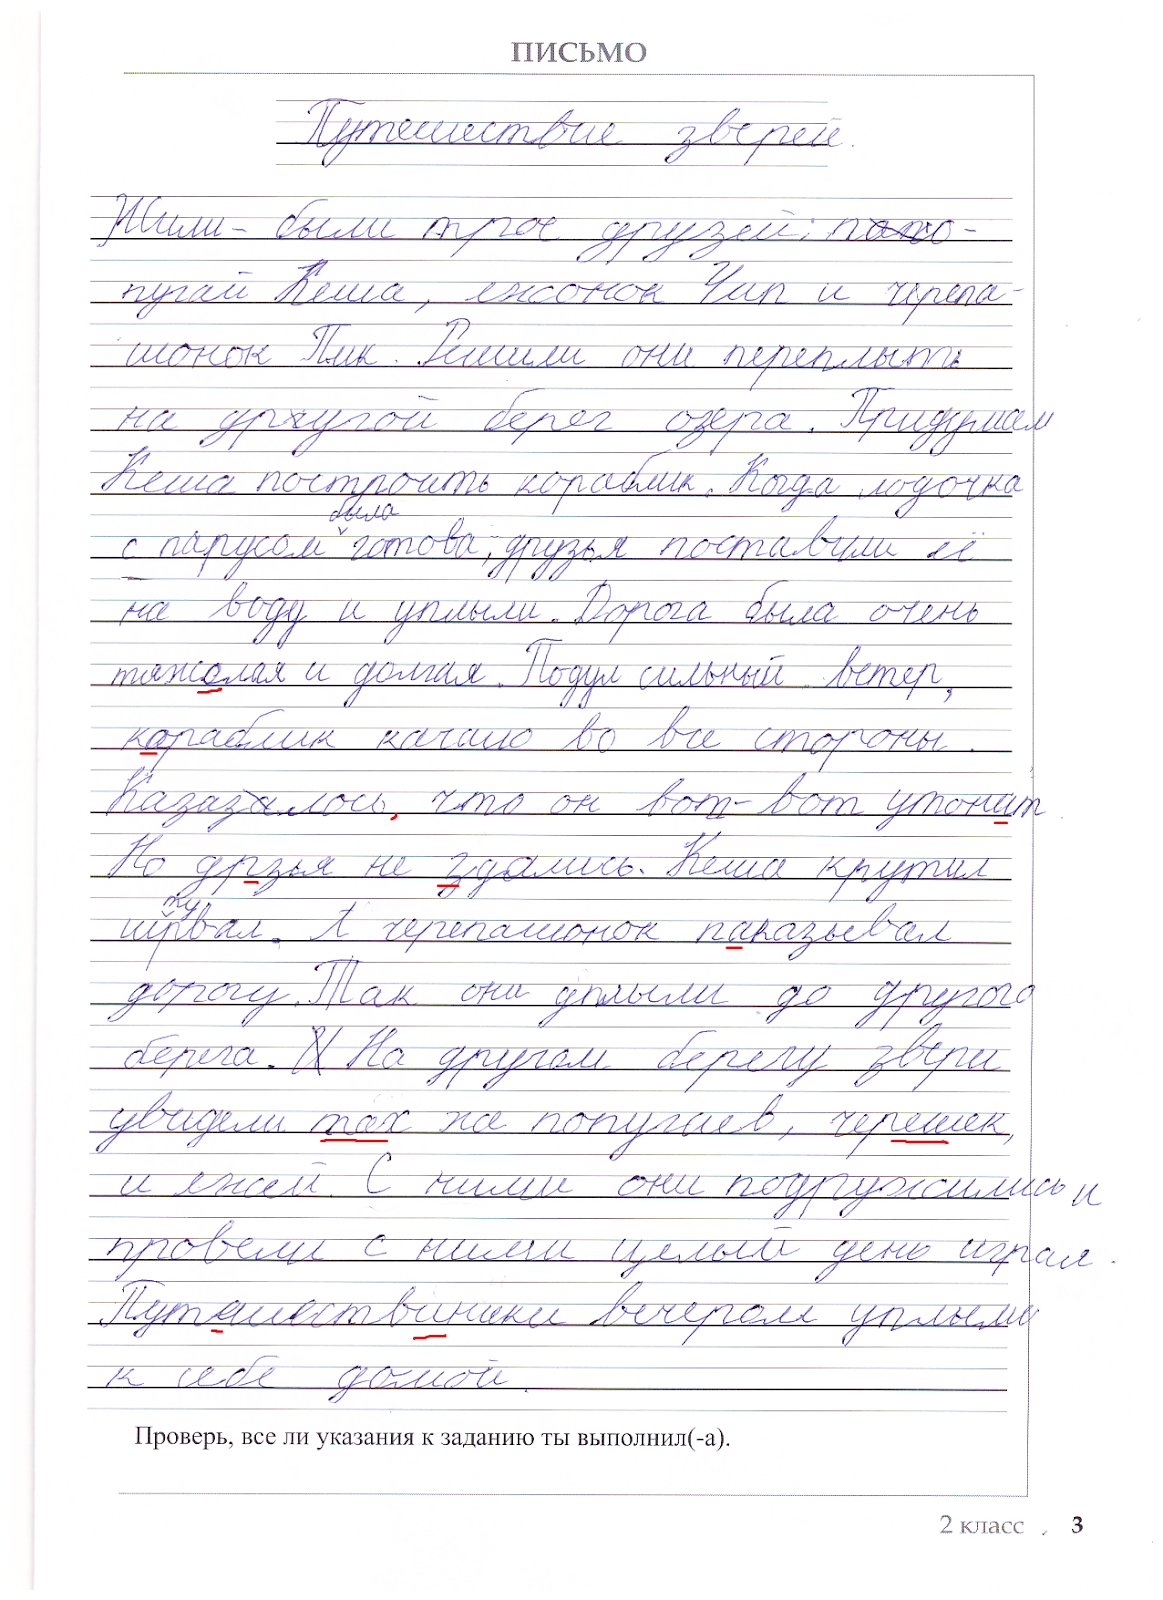 ПИСЬМО
Путешествие зверей.
Жили-были трое друзей: по-
пугай Кеша, ежонок Чип и черепа-
шонок Пик. Решили они переплыть
на другой берег озера. Придумал
Кеша построить кораблик. Когда лодочка
была
с парусом готова, друзья поставили её
на воду и уплыли. Дорога была очень
тяжолая и долгая. Подул сильный ветер,
кораблик качало во все стороны.
Казазалось, что он вот-вот утонит
Но дрзья не здались. Кеша крутил
штурвал. А черепашонок паказывал
дорогу. Так они уплыли до другого
берега. На другом берегу звери
увидели тах же попугаев, черешек,
и ежей. С ними они подружились и
провели с ними целый день играя.
Путешествиники вечером уплыли
к себе домой.
Проверь, все ли указания к заданию ты выполнил(-а).
2 класс 3